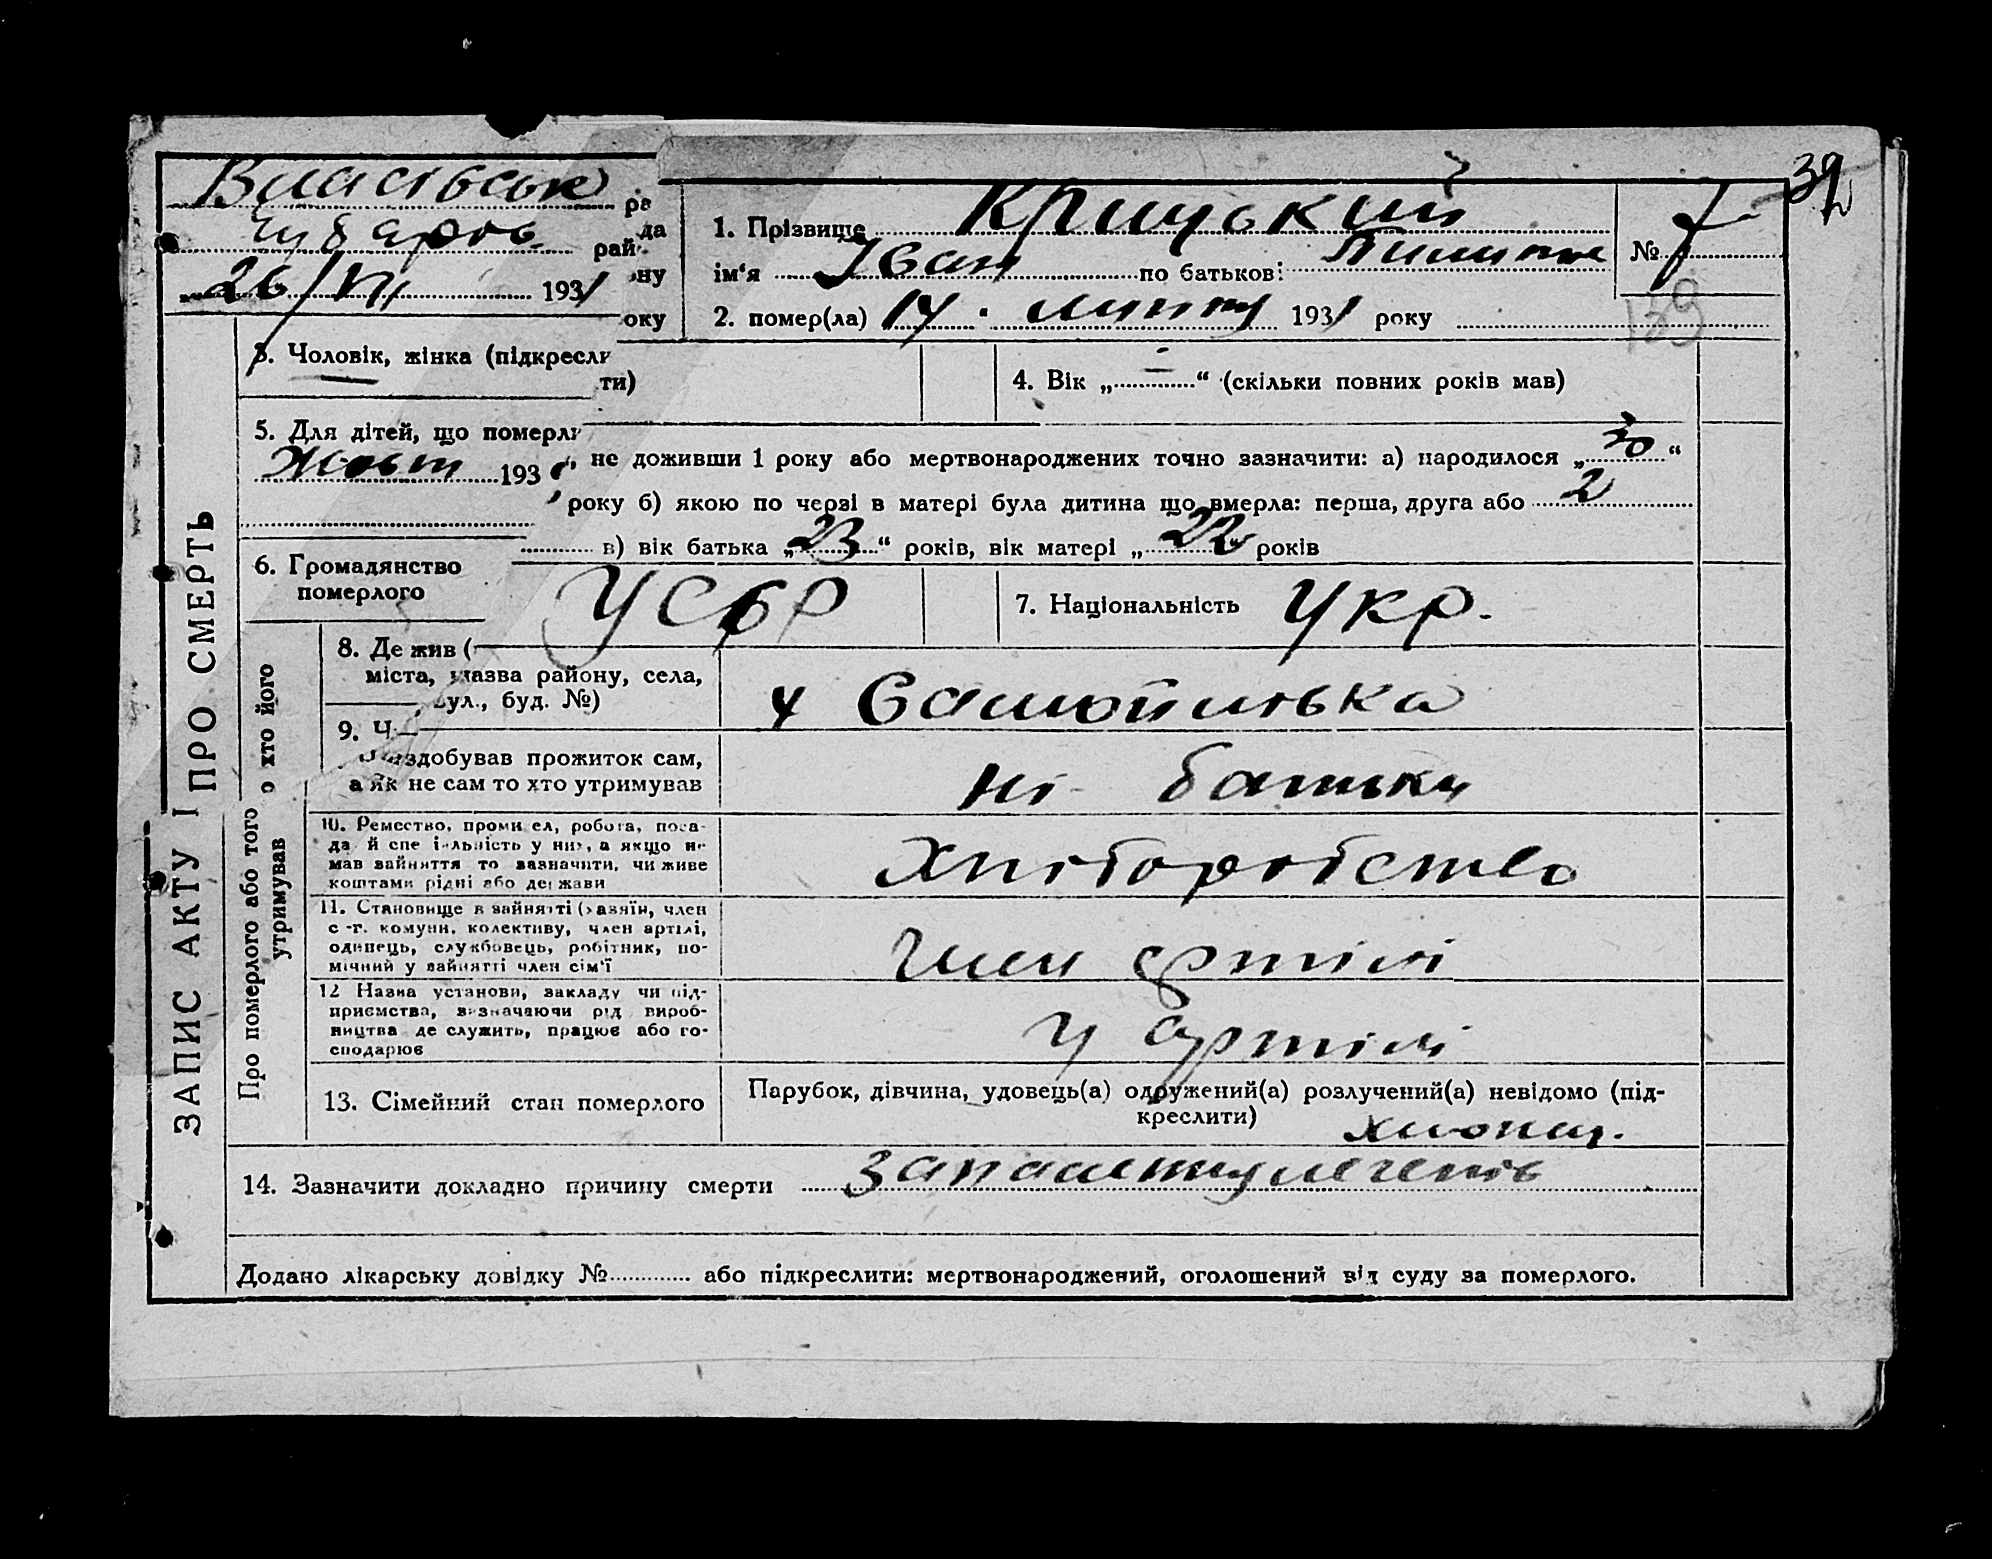 32
Власівськ ра
да
Чубарів район
ну
26/VII 1931
року
1. Прізвище Крицький
ім‘я Іван по батькові
№ 7
139
2. помер(ла) 14. липня 1931 року
3. Чоловік, жінка (підкреслити)
4. Вік „ - “ (скільки повних років мав)
5. Для дітей, що померли, не доживши 1 року або мертвонароджених точно зазначити: а) народилося „30“
Жовт 193 року б) якою по черзі в матері була дитина що вмерла: перша, друга або 2
в) вік батька „23“ років, вік матері „22“ років
6. Громадянство
померлого
УСРР
7. Національність Укр.
ЗАПИС АКТУ ПРО СМЕРТЬ
Про померлого або того хто його
утримував
8. Де жив (
міста, назва району, села,
вул., буд. №)
у
9. Чи здобував прожиток сам,
а як не сам то хто утримував
ні батьки
10. Ремество, промисел, робота, поса-
да й спеціяльність у них, а якщо не
мав зайняття то зазначити, чи живе
коштами рідні або держави
Хліборобство
11. Становище в зайнятті (хазяїн, член
с.-г. комуни, колективу, член артілі,
одинець, службовець, робітник, по-
мічний у зайнятті член сім‘ї
член артілі
12. Назва установи, закладу чи під-
приємства, визначаючи рід вироб-
ництва де служить, працює або го-
сподарює
у артілі
13. Сімейний стан померлого
Парубок, дівчина, удовець(а) одружений(а) розлучений(а) невідомо (під-
креслити)
хлопец.
14. Зазначити докладно причину смерти запалення легенів
Додано лікарську довідку № або підкреслити: мертвонароджений, оголошений від суду за померлого.